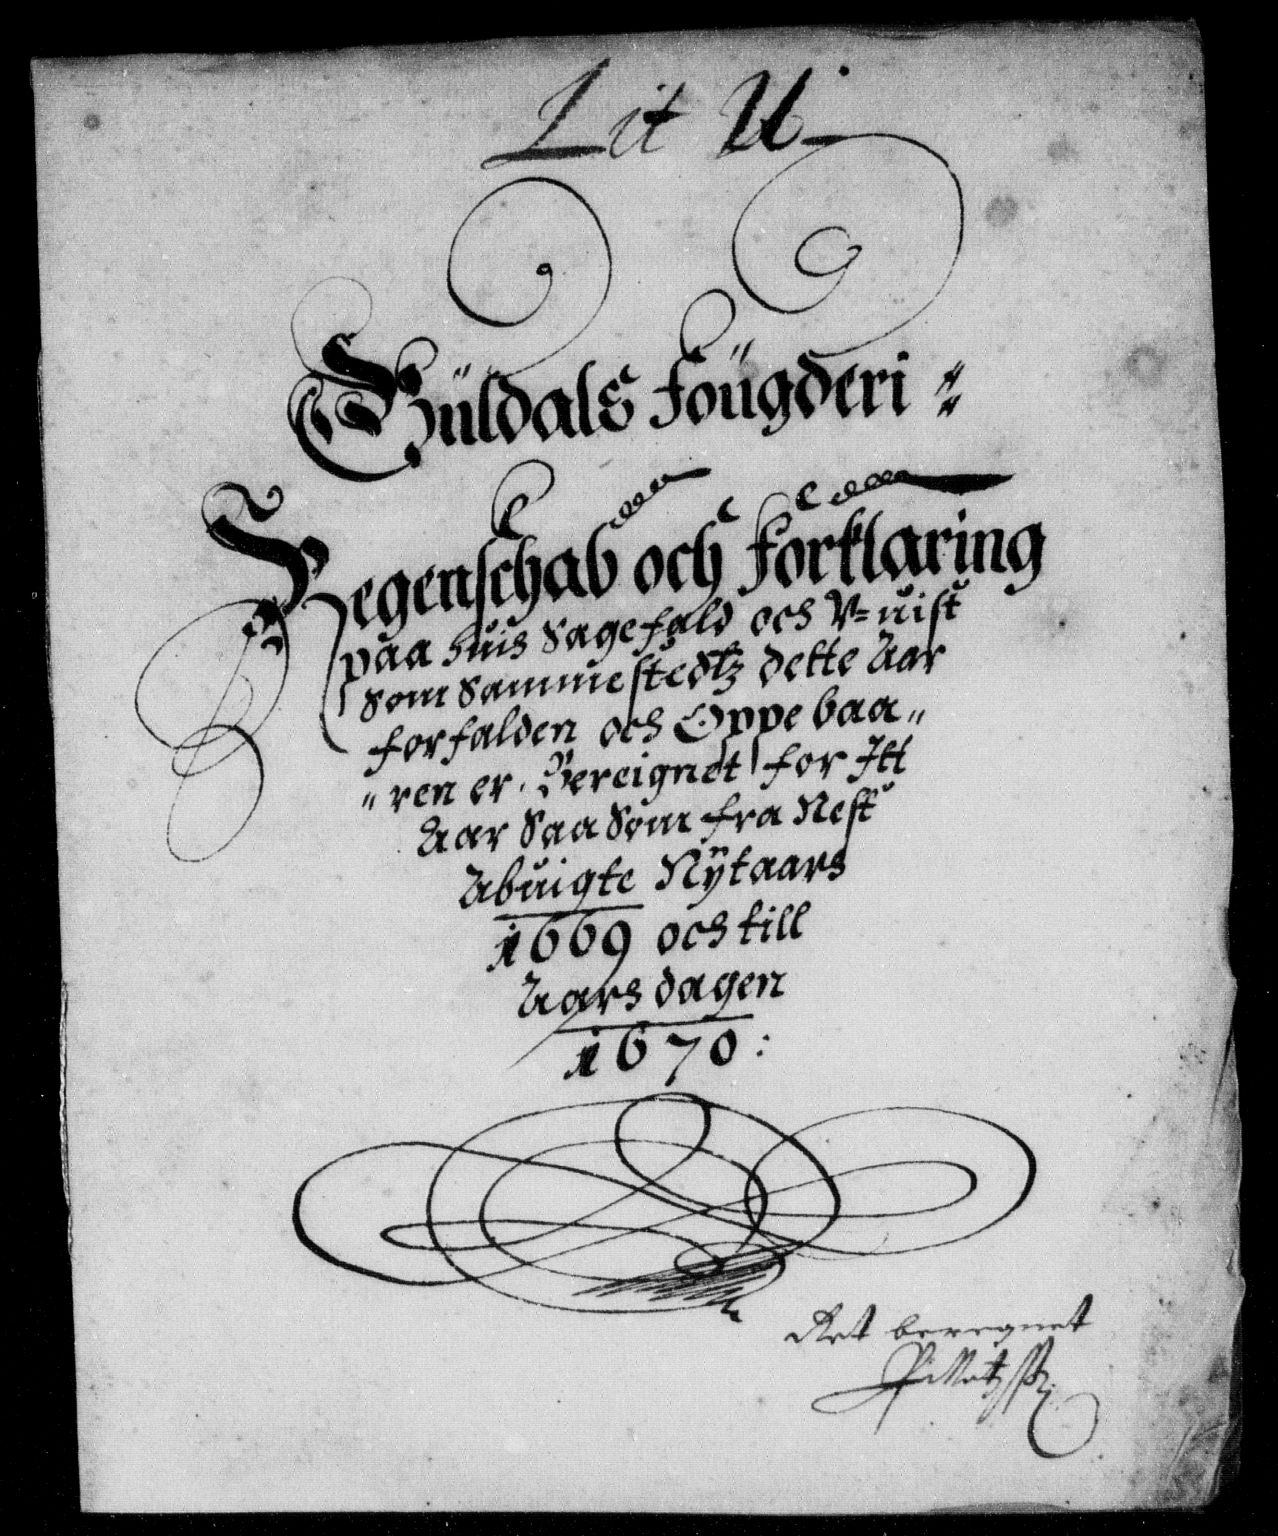 Lit U.
Güldals fougderi
Regenschab och forklaring
paa huis Sagefald och V=uist
Som Sammestedtz dette Aar
forfalden och Oppebaa"
"ren er. Bereignet for Itt
Aar Saa Som fra Nest
Abuigte Nÿtaars
1669 och till
Aars dagen
1670:
Ret beregnet